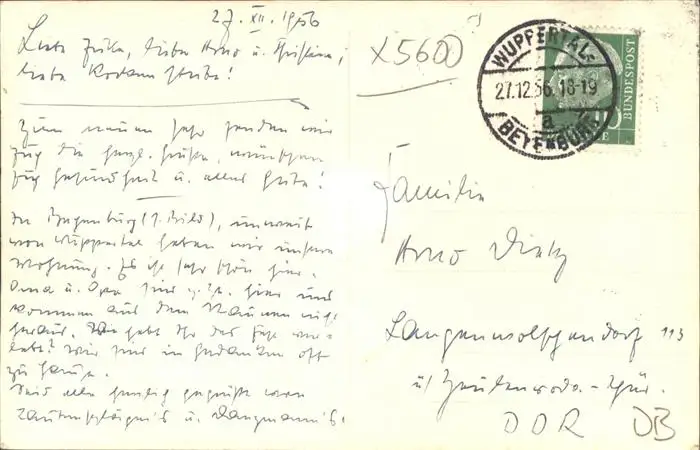 27. XII. 1956
X5600
Liebe liebe Arno u. Christina,
liebe
WUPPERTAL-
27.12.56.18-19
a
BEYENBURG
BUNDESPOST
Zum neuen Jahr senden wir
Euch die herzl. Grüße, wünschen
Euch Gesundheit u. alles Gute!
In Beyenburg (s. Bild), unweit
von Wuppertal haben wir unsere
Wohnung. Es ist sehr schön hier.
Oma u. Opa sind z. Zt. hier und
kommen aus dem Staunen nicht
heraus. Wie habt Ihr das Fest ver-
lebt? Wir sind in Gedanken oft
zu Hause.
Seid alle herzlich gegrüßt von
u.
Familie
Arno
Langenwolschendorf 113
ü/ Zeulenroda - Thür.
DDR DB